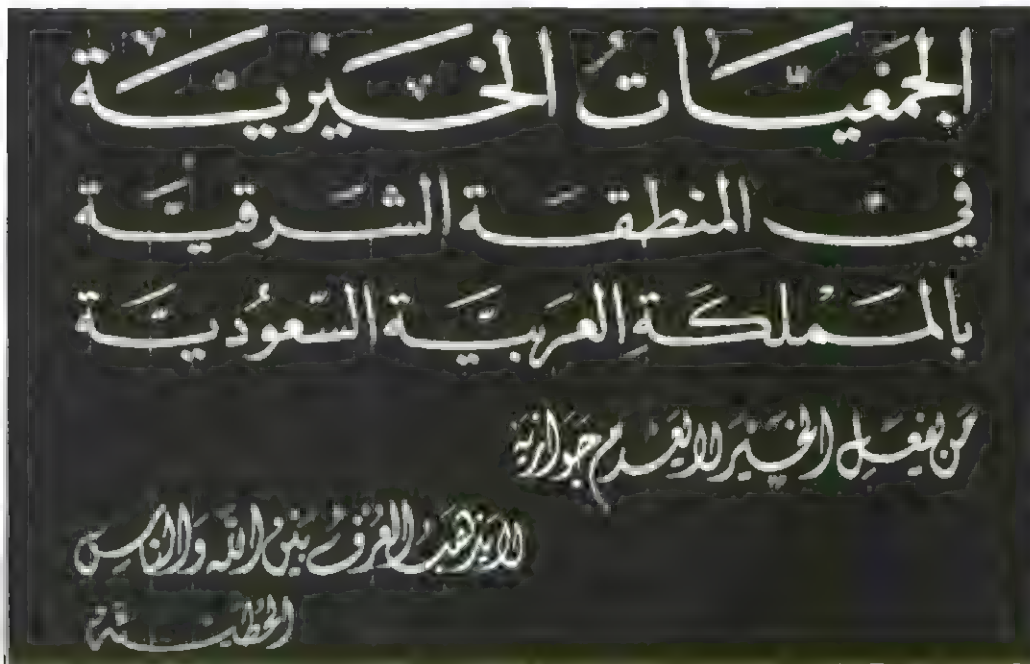 الجمعيَّات الخَيريَّة
في المنطقَة الشَرقيَّة
بالمَملكَةِ العَربيَّة السّعوُديَّة
مَن يفعَلِ الخَيَر لا يَعدَم جَوازيَه
لا يذهَبُ العُرفُ بَينَ اللّه وَالناسِ
الحُطيئَة